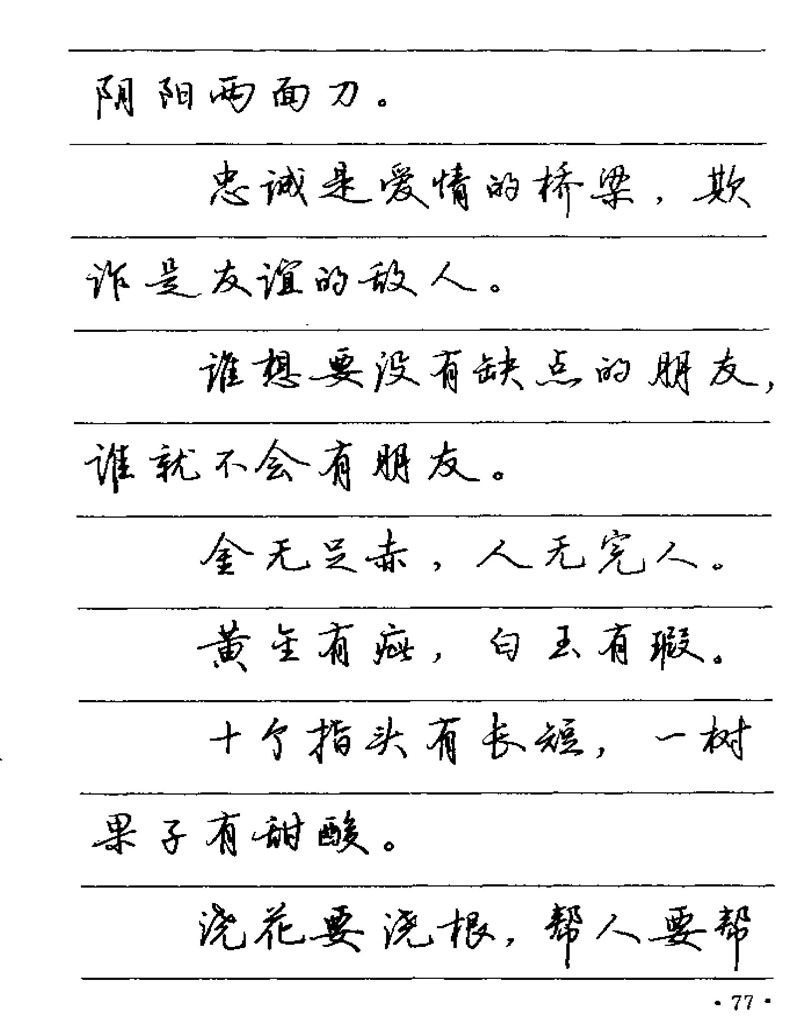 阴阳两面刀。
忠诚是爱情的桥梁，欺
诈是友谊的敌人。
谁想要没有缺点的朋友，
谁就不会有朋友。
金无足赤，人无完人。
黄金有疵，白玉有瑕。
十个指头有长短，一树
果子有甜酸。
浇花要浇根，帮人要帮
·77·